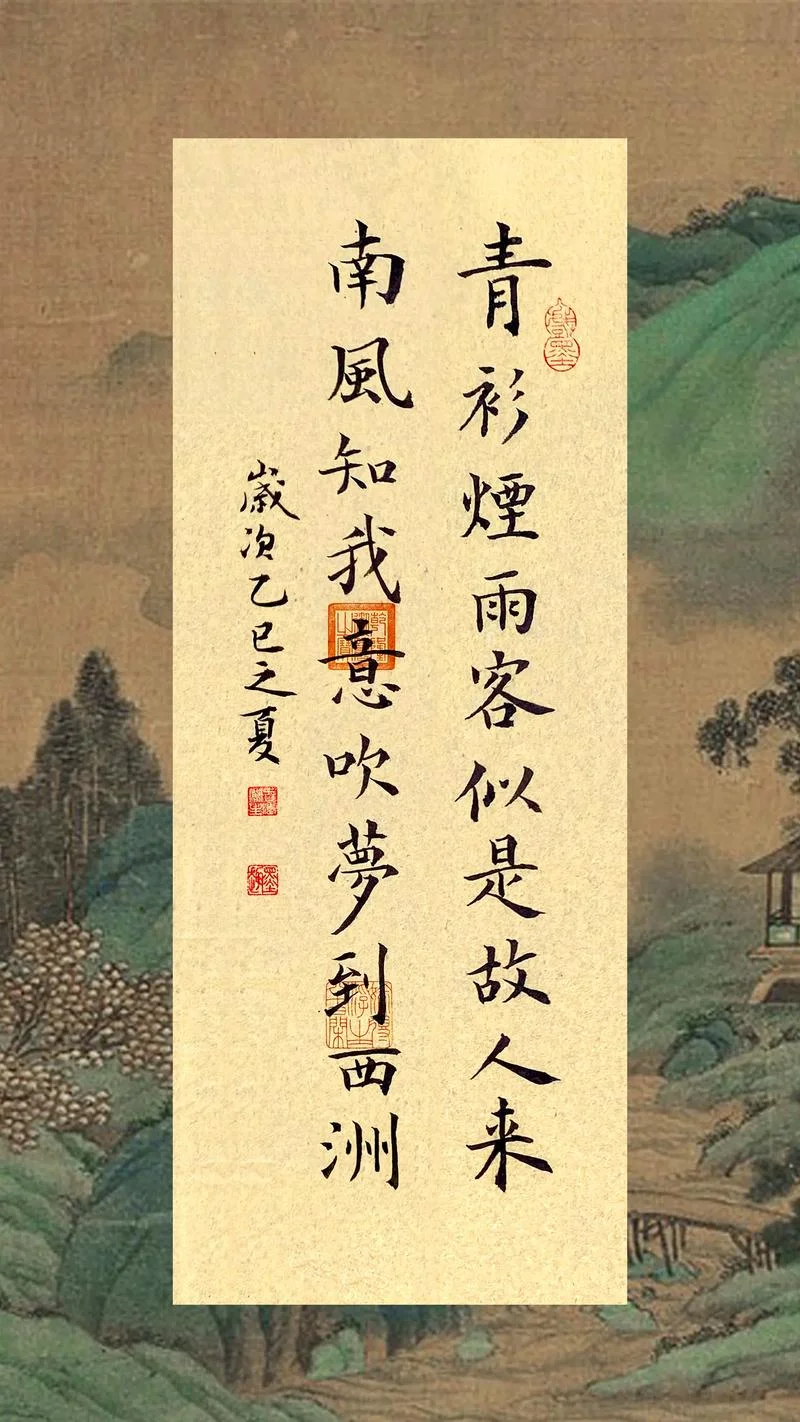 青衫煙雨客似是故人来
南風知我意吹夢到西洲
歲次乙巳之夏